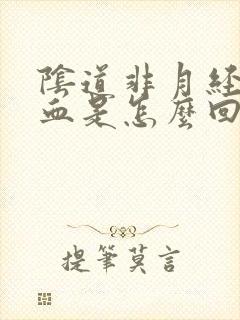 陰道非月經
血是怎麼回
提筆莫言